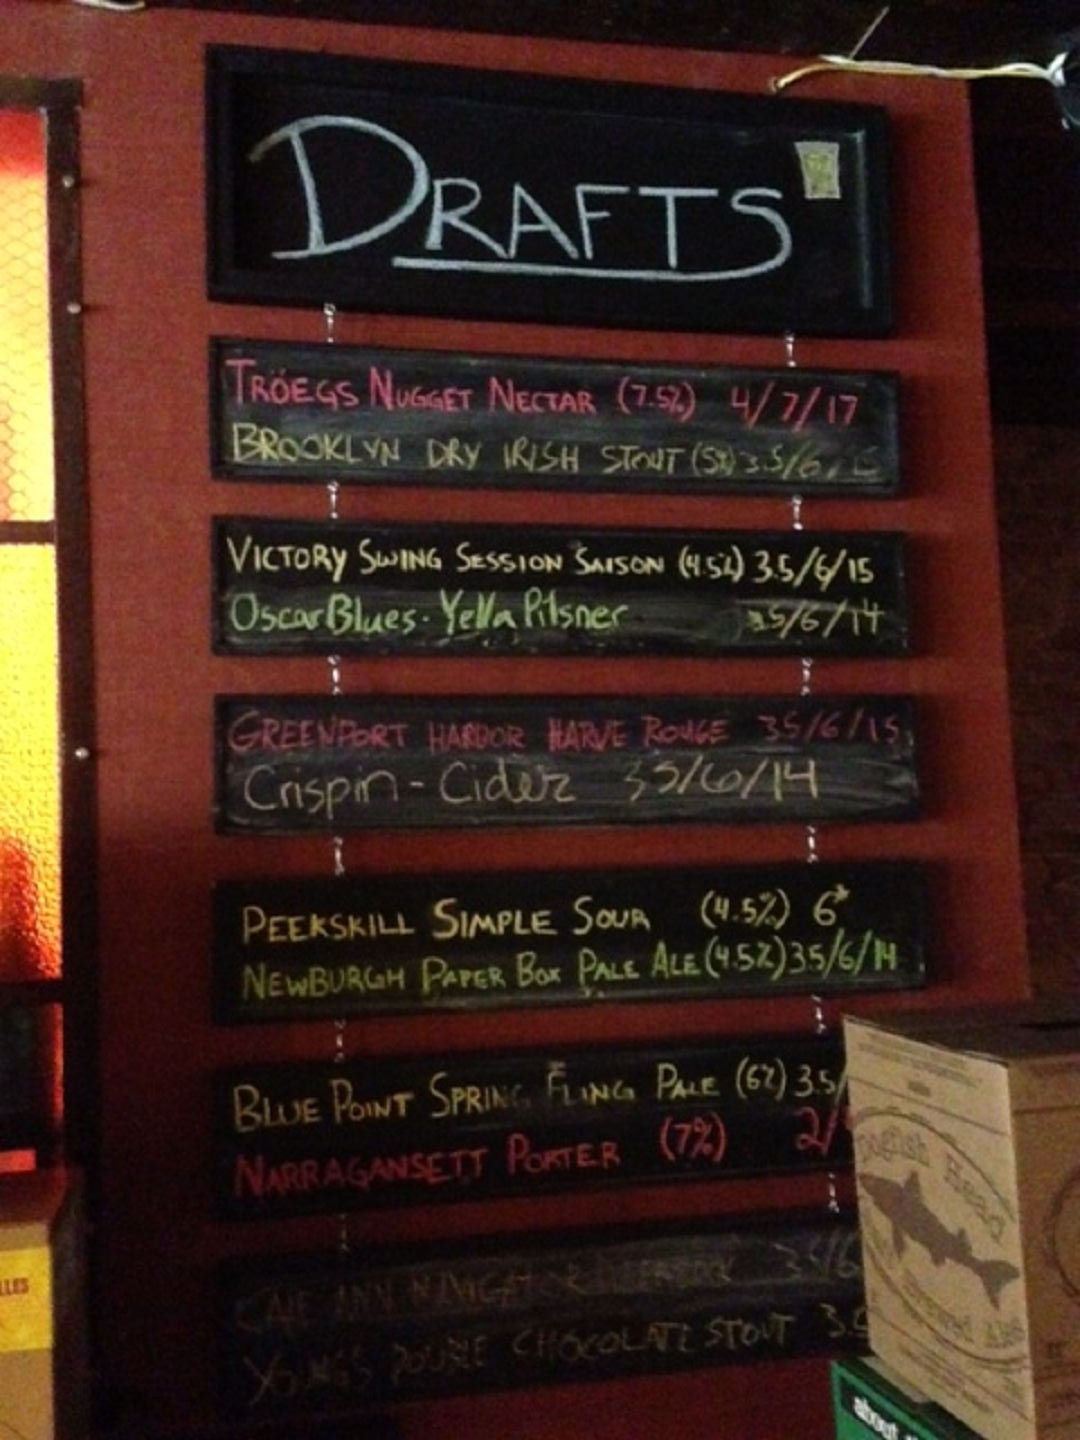 DRAFTS
TRÖEGS NUGGET NECTAR (7.5%) 4/7/17
BROOKLYN DRY IRISH STOUT (5%) 3.5/6/15
VICTORY SWING SESSION SAISON (4.5%) 3.5/6/15
Oscar Blues - Yella Pilsner 35/6/14
GREENPORT HARBOR HARVE ROUGE 35/6/15
Crispin - Cider 35/6/14
PEEKSKILL SIMPLE SOUR (4.5%) 6*
NEWBURGH PAPER BOX PALE ALE (4.5%) 35/6/14
BLUE POINT SPRING FLING PALE (6%) 3.5/
NARRAGANSETT PORTER (7%) 2/
CAPE ANN NAVIGATOR 3.5/6
YOUNG'S DOUBLE CHOCOLATE STOUT 3.5
Dogfish Head
about